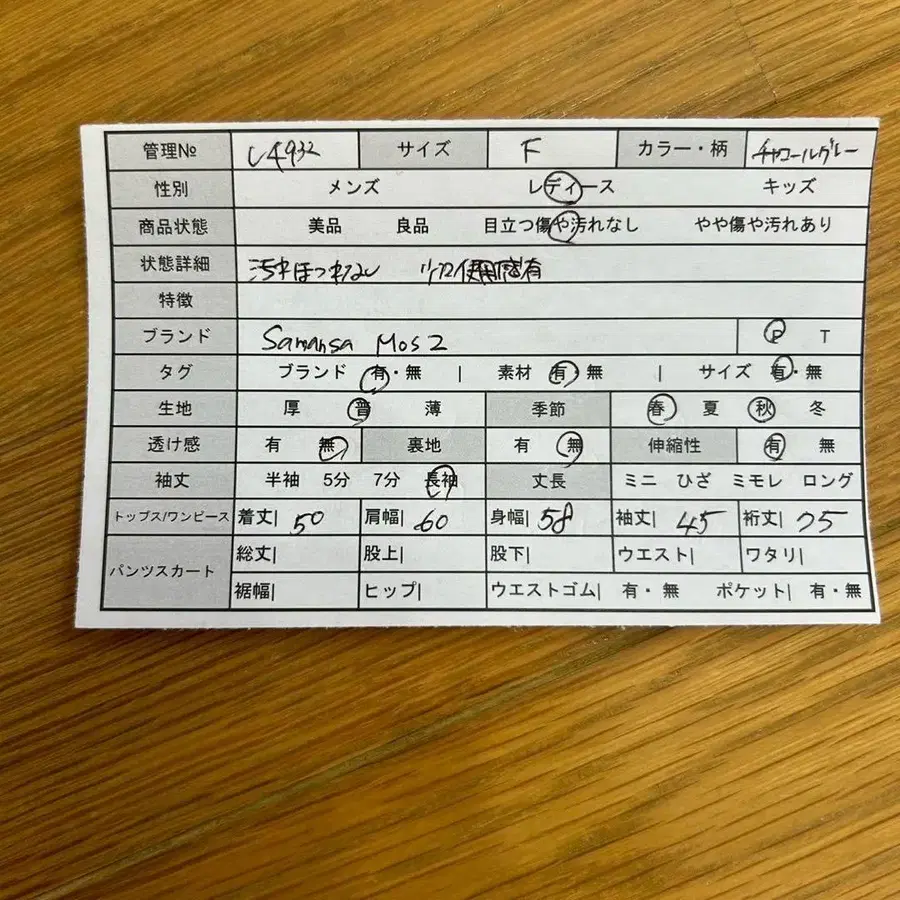 管理№ サイズ F カラー・柄 チャコールグレー
性別 メンズ レディース キッズ
商品状態 美品 良品 目立つ傷や汚れなし やや傷や汚れあり
状態詳細 汚れほつれなし 使用感有
特徴
ブランド Samansa Mos2 P T
タグ ブランド 有・無 | 素材 有・無 | サイズ 有・無
生地 厚 普 薄 季節 春 夏 秋 冬
透け感 有 無 裏地 有 無 伸縮性 有 無
袖丈 半袖 5分 7分 長袖 丈長 ミニ ひざ ミモレ ロング
トップス/ワンピース 着丈| 50 肩幅| 60 身幅| 58 袖丈| 45 裄丈| 75
パンツスカート 総丈| 股上| 股下| ウエスト| ワタリ|
裾幅| ヒップ| ウエストゴム| 有・無 ポケット| 有・無